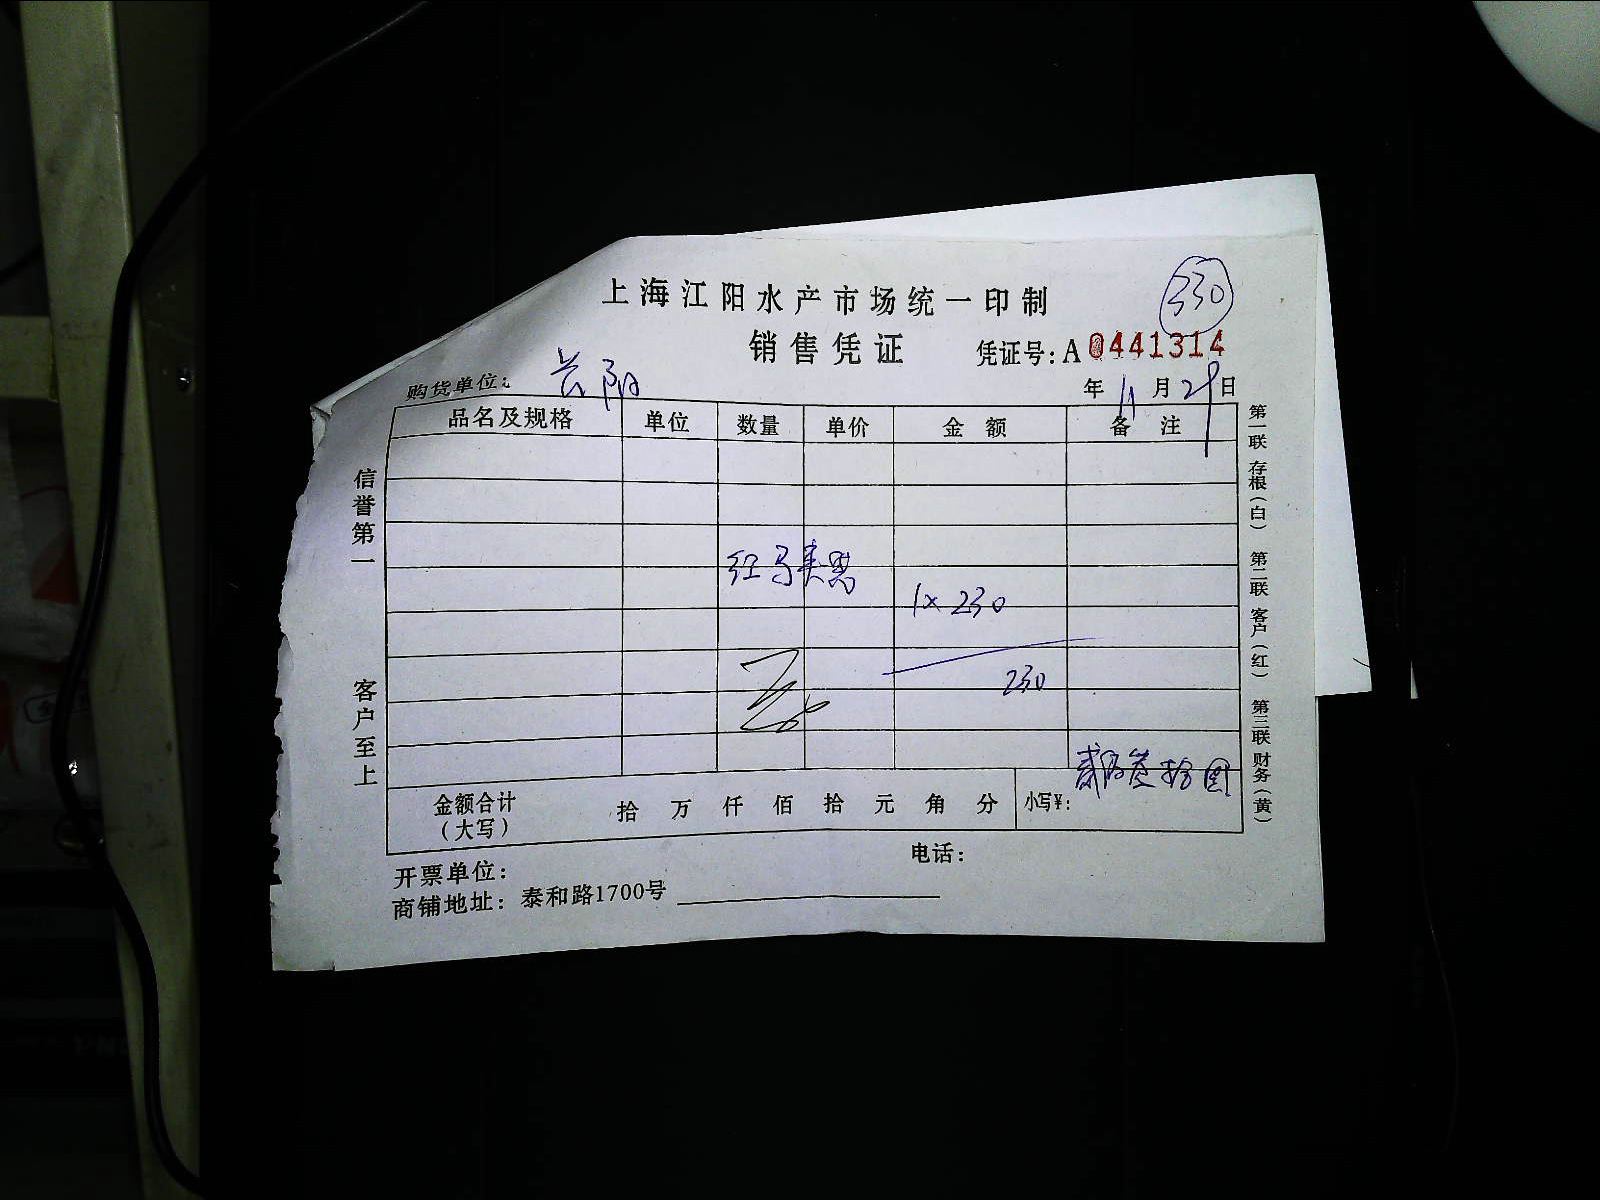 上海江阳水产市场统一印制
330
销售凭证
凭证号:A 0441314
购货单位: 长阳
年 11 月 29 日
品名及规格 单位 数量 单价 金额 备注
红马夹
1×230
230
贰佰叁拾圆
金额合计(大写) 拾 万 仟 佰 拾 元 角 分 小写¥:
开票单位:
电话:
商铺地址: 泰和路1700号
信誉第一
客户至上
第一联 存根(白) 第二联 客户(红) 第三联 财务(黄)